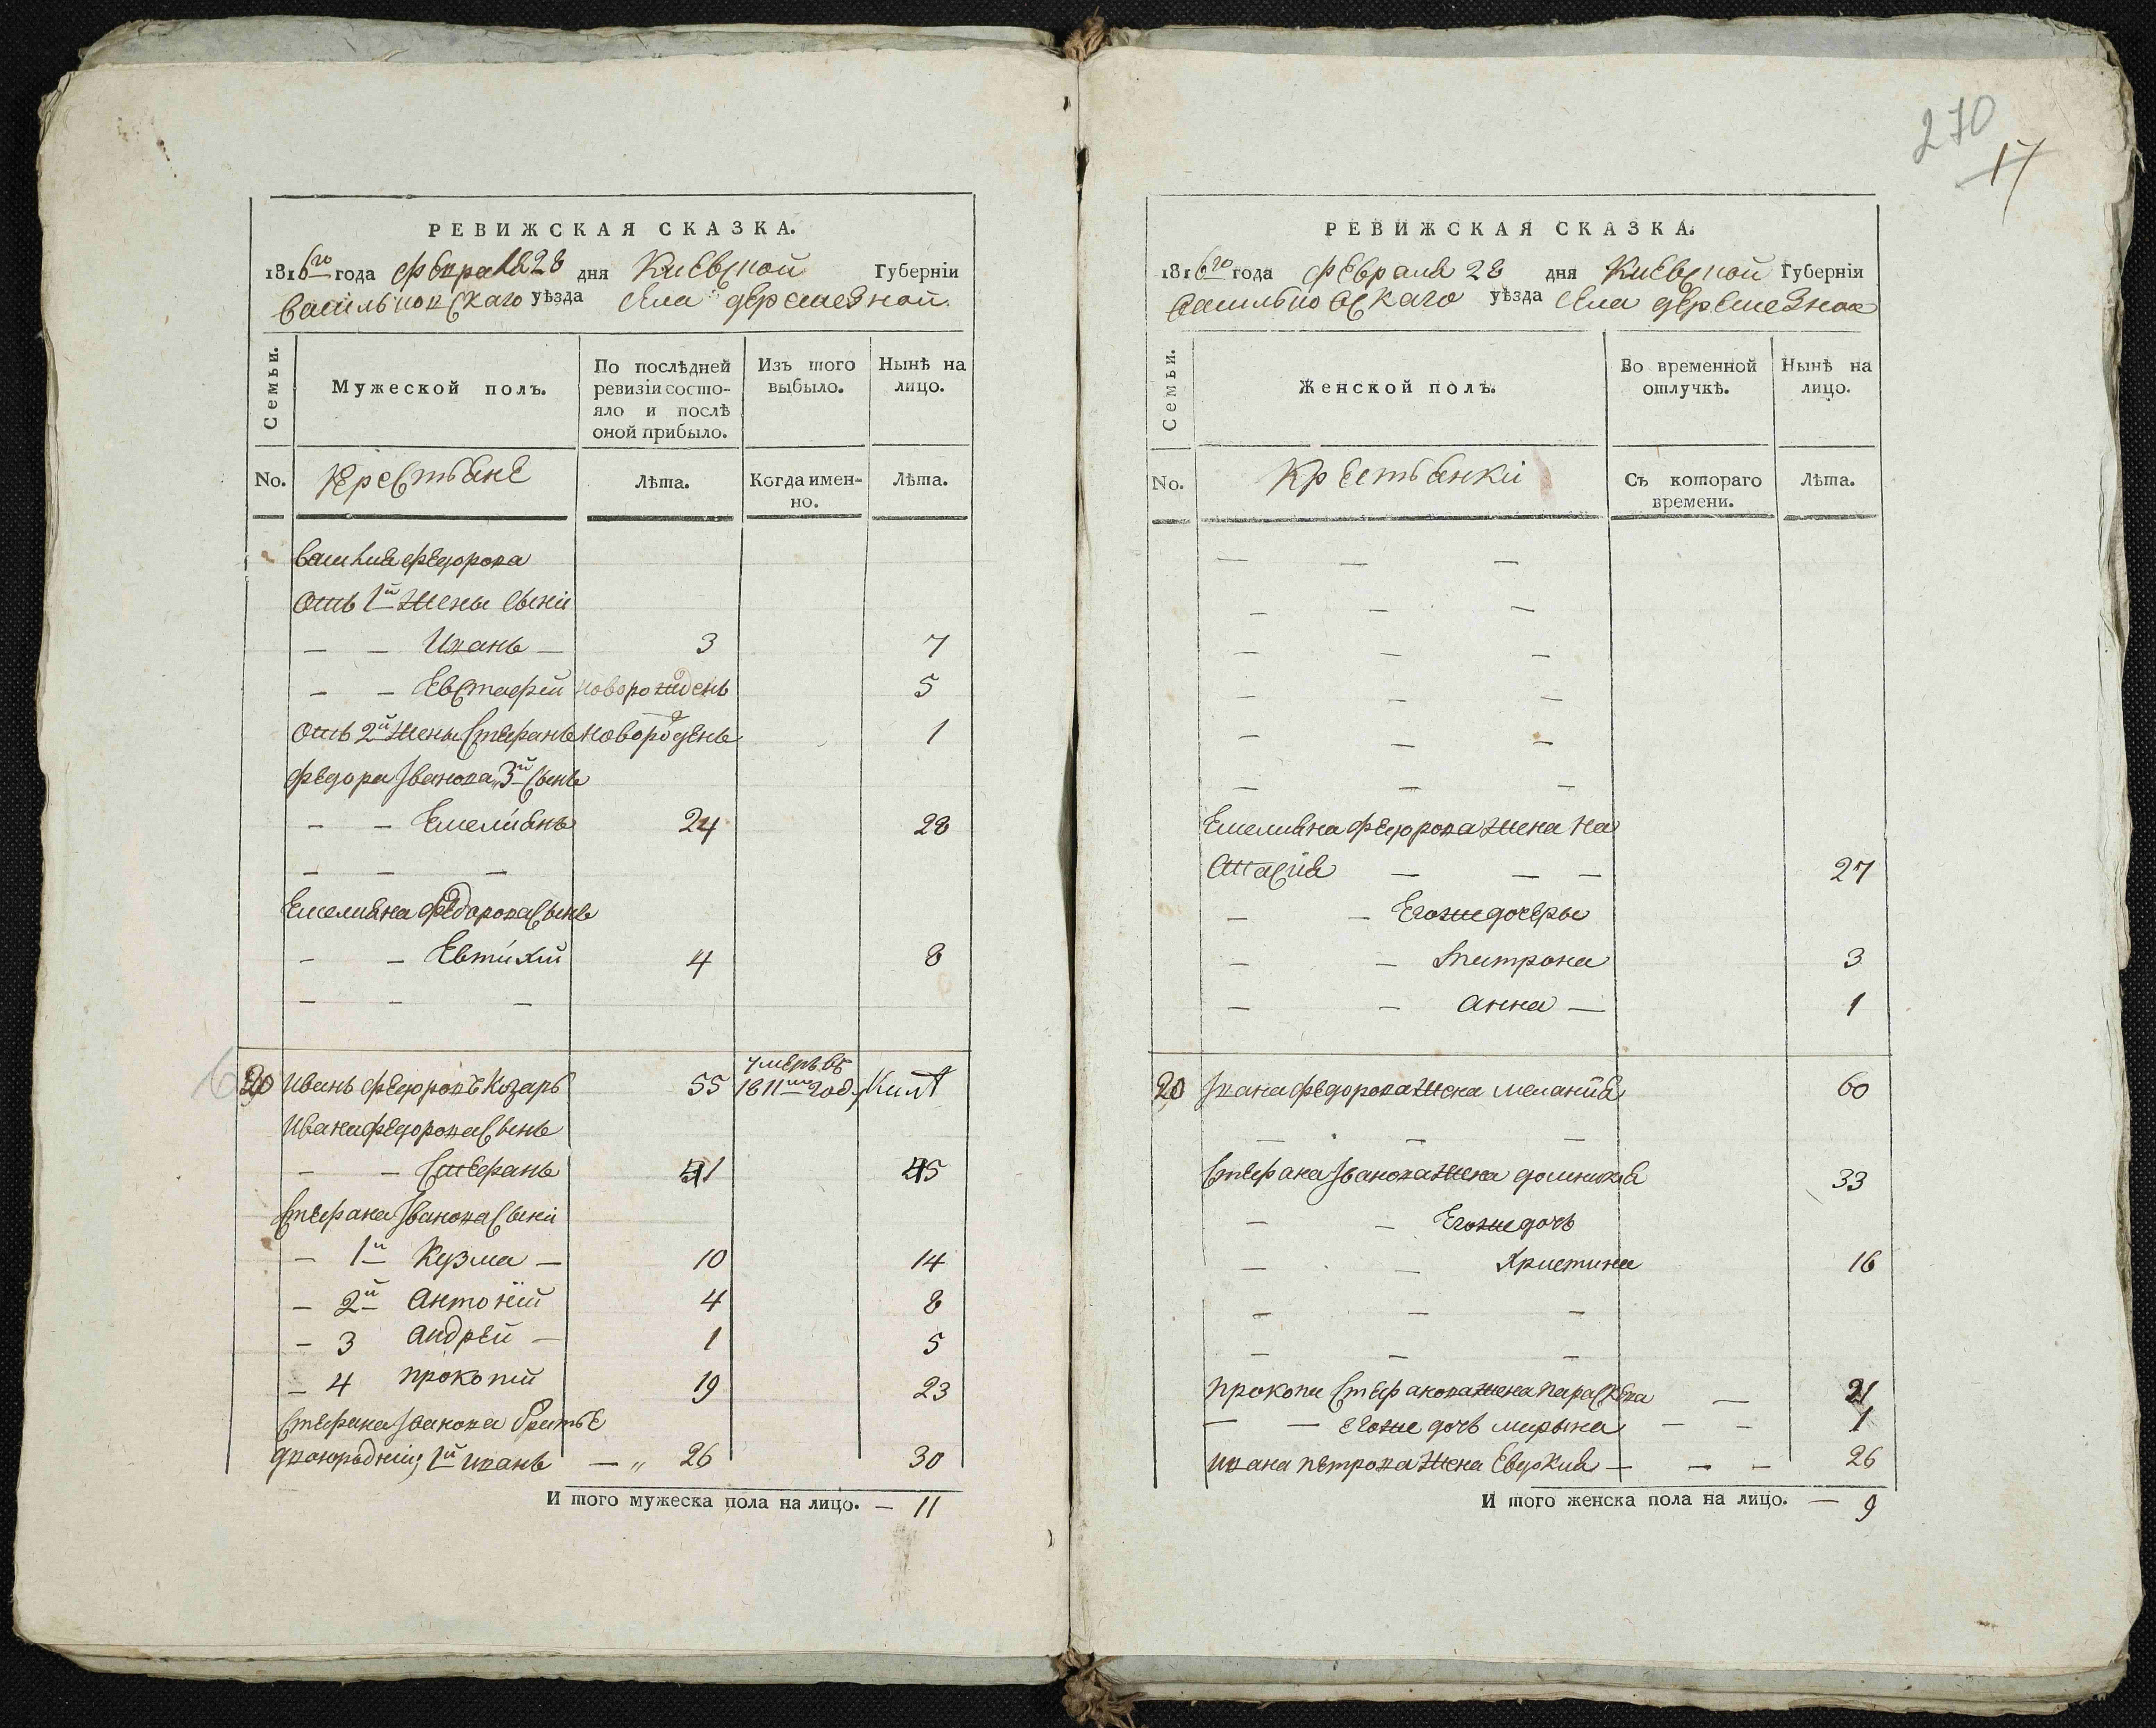 270
17
РЕВИЖСКАЯ СКАЗКА.
1816го года Февраля 28 дня Киевской Губернїи
Васильковскаго уѣзда села Деремезной
Семьи.
Мужеской полъ.
По послѣдней ревизїи состояло и послѣ оной прибыло.
Изъ того выбыло.
Нынѣ на лицо.
No.
Крестьяне
Лѣта.
Когда именно.
Лѣта.
Василия Федорова
Отъ 1й жены сыни
— — Иванъ — 3 7
— — Евстафий новорожденъ 5
Отъ 2й жены Стефанъ новорожденъ 1
Федора Іванова 3й сынъ
— — Емелиянъ 24 28
— — —
Емелияна Федорова сынъ
— — Евтихий 4 8
— — —
20 Иванъ Федоровъ Козарь 55 умеръ въ 1811м году
Ивана Федорова сынъ
— — Стефанъ 41 45
Стефана Іванова сыни
— 1й Кузма — 10 14
— 2й Антоній 4 8
— 3 Андрей — 1 5
— 4 Прокопий 19 23
Стефана Іванова братьѣ
двоюрадніи, 1й Иванъ — „ 26 30
И того мужеска пола на лицо. — 11
РЕВИЖСКАЯ СКАЗКА.
1816го года Февраля 28 дня Киевской Губернїи
Васильковскаго уѣзда села Деремезной
Семьи.
Женской полъ.
Во временной отлучкѣ.
Нынѣ на лицо.
No.
Крестьянки
Съ котораго времени.
Лѣта.
— — —
— — —
— — —
— — —
— — —
— — —
Емелияна Федорова жена На
стасия — — — 27
— — Егоже дочеры
— — Митрона 3
— — Анна — 1
20 Івана Федорова жена Меланїя 60
— — —
Стефана Іванова жена Домникия 33
— — Егоже дочь
— — Христина 16
— — —
— — —
Прокопи Стефанова жена Параскева — 21
— — Егоже дочь Марына — — 1
Ивана Петрова жена Евдокия — — — 26
И того женска пола на лицо. — 9